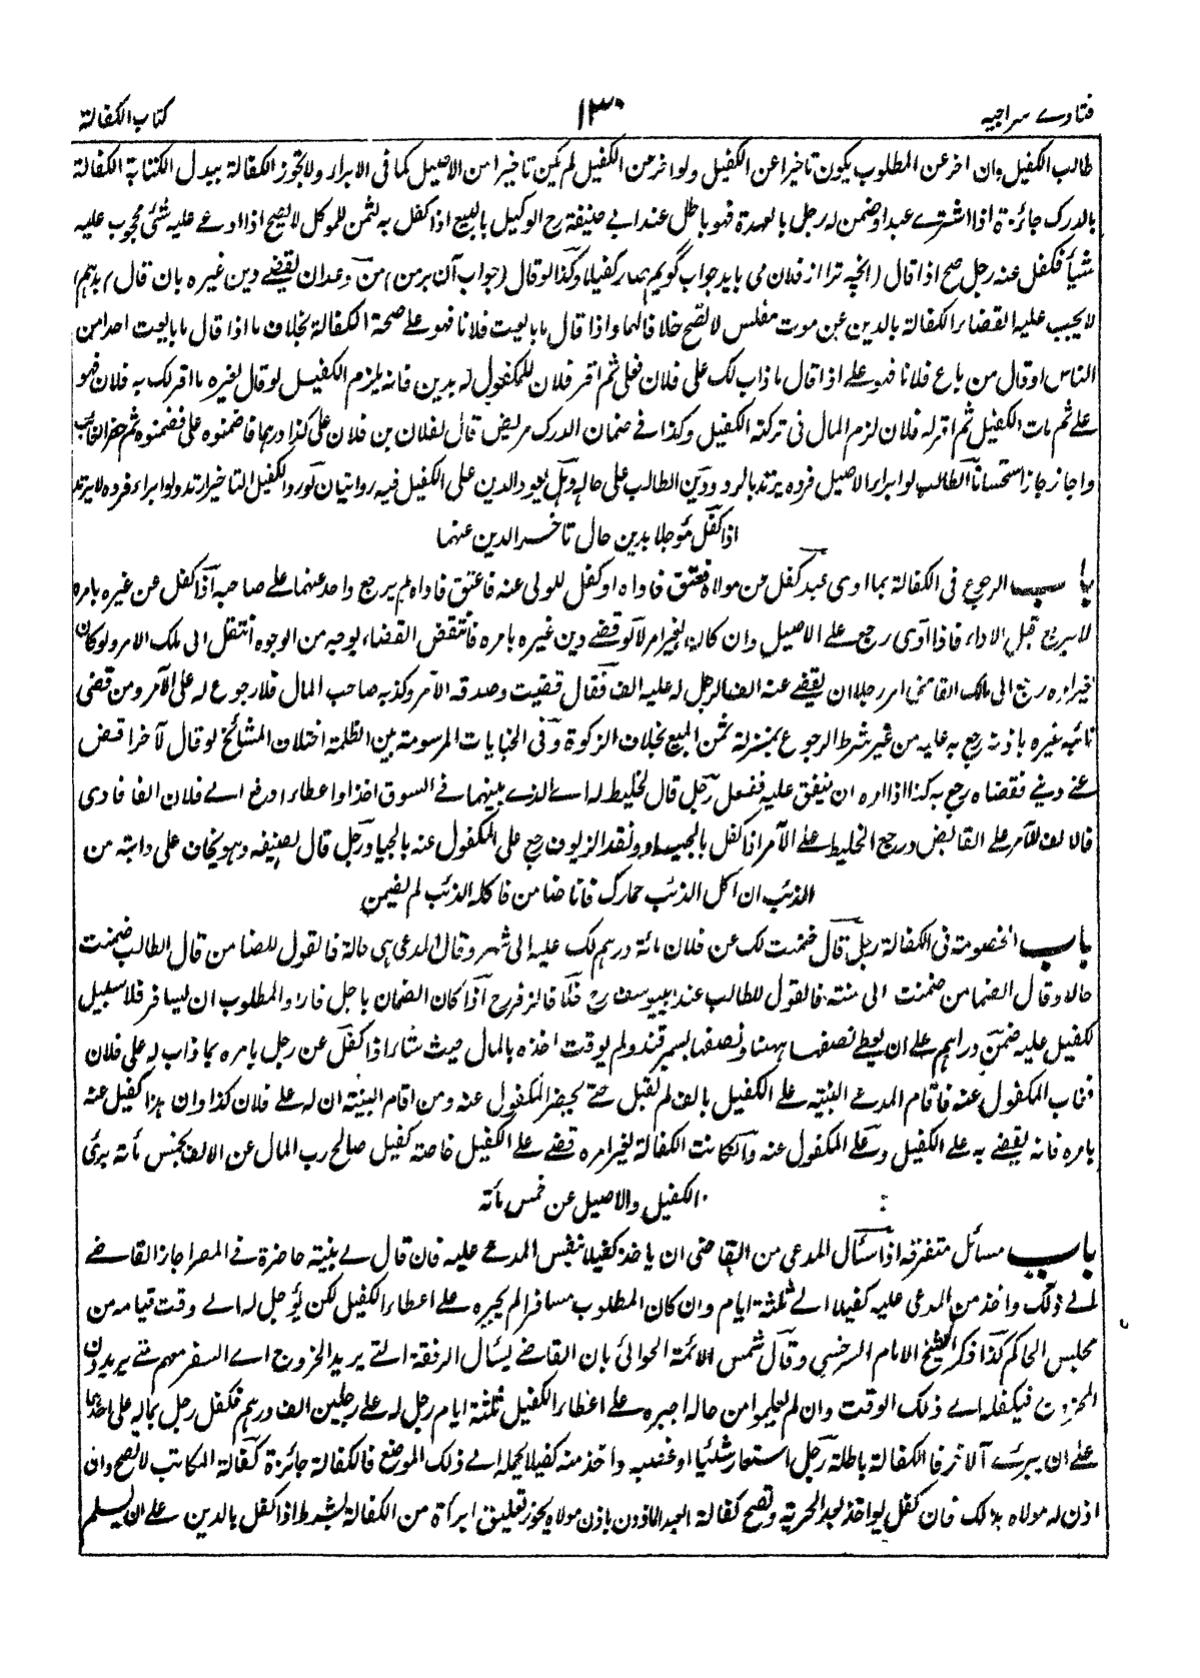 فتاوے سراجیہ
۱۳۰
کتاب الکفالة
طالب الکفیل وان اخر عن المطلوب یکون تاخیرا عن الکفیل ولو اخر عن الکفیل لم یکن تاخیرا من الاصیل کما فی الابراء ولا تجوز الکفالة ببدل الکتابة الکفالة
بالدرک جائزة اذا اشترے عبدا وضمن له رجل بالعهدة فهو باطل عند ابی حنیفة رح الوکیل بالبیع اذا کفل به لثمن للموکل لا یصح اذا ادعے علیه شئ مجوب علیه
شیأ فکفل عنه رجل صح اذا قال (انچه ترا از فلان می باید جواب گویم) یصار کفیلا وکذا لو قال (جواب آن بر من) من وعد ان یقضے دین غیره بان قال (بدهم)
لا یجب علیه القضاء الکفالة بالدین عن موت مفلس لا تصح خلافا لهما واذا قال ما بایعت فلانا فهو علے صحة الکفالة بخلاف ما اذا قال ما بایعت احدا من
الناس او قال من باع فلانا فهو علے اذا قال ما ذاب لک علی فلان فعلی ثم اقر فلان للمکفول له بدین فانه یلزم الکفیل لو قال لغیره ما اقر لک به فلان فهو
علے ثم مات الکفیل ثم اقر له فلان لزم المال فی ترکة الکفیل وکذا فے ضمان الدرک مریض قال لفلان بن فلان علی کذا درهما فاضمنوه علی فضمنوه ثم حضر الغائب
واجاز جاز استحسانا الطالب لو ابراء الاصیل فرده یرتد بالرد ودین الطالب علی حاله وهل یعود الدین علی الکفیل فیه روایتان لو رد الکفیل التاخیر ارتد ولو ابراء فرده لا یرتد
اذا کفل مؤجلا بدین حال تاخر الدین عنهما
باب الرجوع فی الکفالة بما ادی عبد کفل عن مولاه فعتق فاداه او کفل المولی عنه فاعتق فاداه لم یرجع واحد منهما علے صاحبه اذا کفل عن غیره بامره
لا یرجع قبل الاداء فاذا ادی رجع علے الاصیل وان کان بغیر امره لا لو قضے دین غیره بامره فانتقض القضاء بوجه من الوجوه انتقل الی ملک الامر ولو کان
بغیر امره رجع الی ملک القاضی امر رجلا ان یقضے عنه الف الرجل له علیه الف فقال قضیت وصدقه الآمر وکذبه صاحب المال فلا رجوع له علی الآمر ومن قضی
نائبه غیره باذنه رجع به علیه من غیر شرط الرجوع بمنزلة ثمن المبیع بخلاف الزکوة وفی الجنایات المرسومة بین الظلمة اختلاف المشائخ لو قال لآخر اقض
عنے دینے فقضاه رجع به کذا اذا امره ان ینفق علیه ففعل رجل قال لخلیط له اے الذے بینهما فے السوق اخذ واعطاء ادفع الے فلان الفا فادی
فالالف للآمر علے القابض ورجع الخلیط علے الآمر اذا کفل بالجیاد ونقد الزیوف رجع علی المکفول عنه بالجیاد رجل قال لضیفه وهو یخاف علی دابته من
الذئب ان اکل الذئب حمارک فانا ضامن فاکله الذئب لم یضمن
باب الخصومة فی الکفالة رجل قال ضمنت لک عن فلان مائة درهم لک علیه الی شهر وقال المدعی هی حالة فالقول للضامن قال الطالب ضمنت
حالا وقال الضامن ضمنت الی سنة فالقول للطالب عند ابی یوسف رح خلافا لزفر رح اذا کان الضمان باجل فاراد المطلوب ان یسافر فلا سبیل
لکفیل علیه ضمن دراهم علے ان یعطے نصفها ههنا ونصفها بسمرقند ولم یوقت اخذه بالمال حیث شاء اذا کفل عن رجل بامره بما ذاب له علی فلان
فغاب المکفول عنه فاقام المدعے البینة علے الکفیل بالف لم تقبل حتے یحضر المکفول عنه ومن اقام البینة ان له علے فلان کذا وان هذا کفیل عنه
بامره فانه یقضے به علے الکفیل وعلے المکفول عنه وان کانت الکفالة بغیر امره قضے علے الکفیل خاصة کفیل صالح رب المال عن الالف بخمس مأته برئ
الکفیل والاصیل عن خمس مأته
باب مسائل متفرقه اذا سأل المدعی من القاضی ان یاخذ کفیلا بنفس المدعے علیه فان قال لے بینة حاضرة فے المصر اجاز القاضے
لے ذلک واخذ من المدعی علیه کفیلا الے ثلثة ایام وان کان المطلوب مسافرا لم یجبره علے اعطاء الکفیل لکن یؤجل له الے وقت قیامه من
مجلس الحاکم کذا ذکر الشیخ الامام السرخسی وقال شمس الائمة الحلوائی بان القاضے یسأل الرفقة التے یرید الخروج اے السفر معهم متے یریدون
الخروج فیکفله الے ذلک الوقت وان لم یعلموا من حاله اجبره علے اعطاء الکفیل ثلثة ایام رجل له علے رجلین الف درهم فکفل رجل بماله علی احدهما
علے ان یبرئ الآخر فالکفالة باطلة رجل استعار شیئا او غصب واخذ منه کفیلا یحمله الے ذلک الموضع فالکفالة جائزة کفالة المکاتب لا تصح وان
اذن له مولاه بذلک فان کفل یواخذ بعد الحریة وتصح کفالة العبد الماذون باذن مولاه یجوز تعلیق ابرأة من الکفالة بشرط اذا کفل بالدین علے ان یسلم